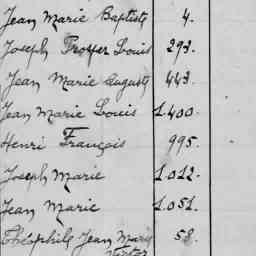 Jean Marie Baptiste 4.
Joseph Prosper Louis 293.
Jean Marie Auguste 443.
Jean Marie Louis 1.400.
Henri François 995.
Joseph Marie 1.012.
Jean Marie 1.051.
Théophile Jean Marie 58.
Victor